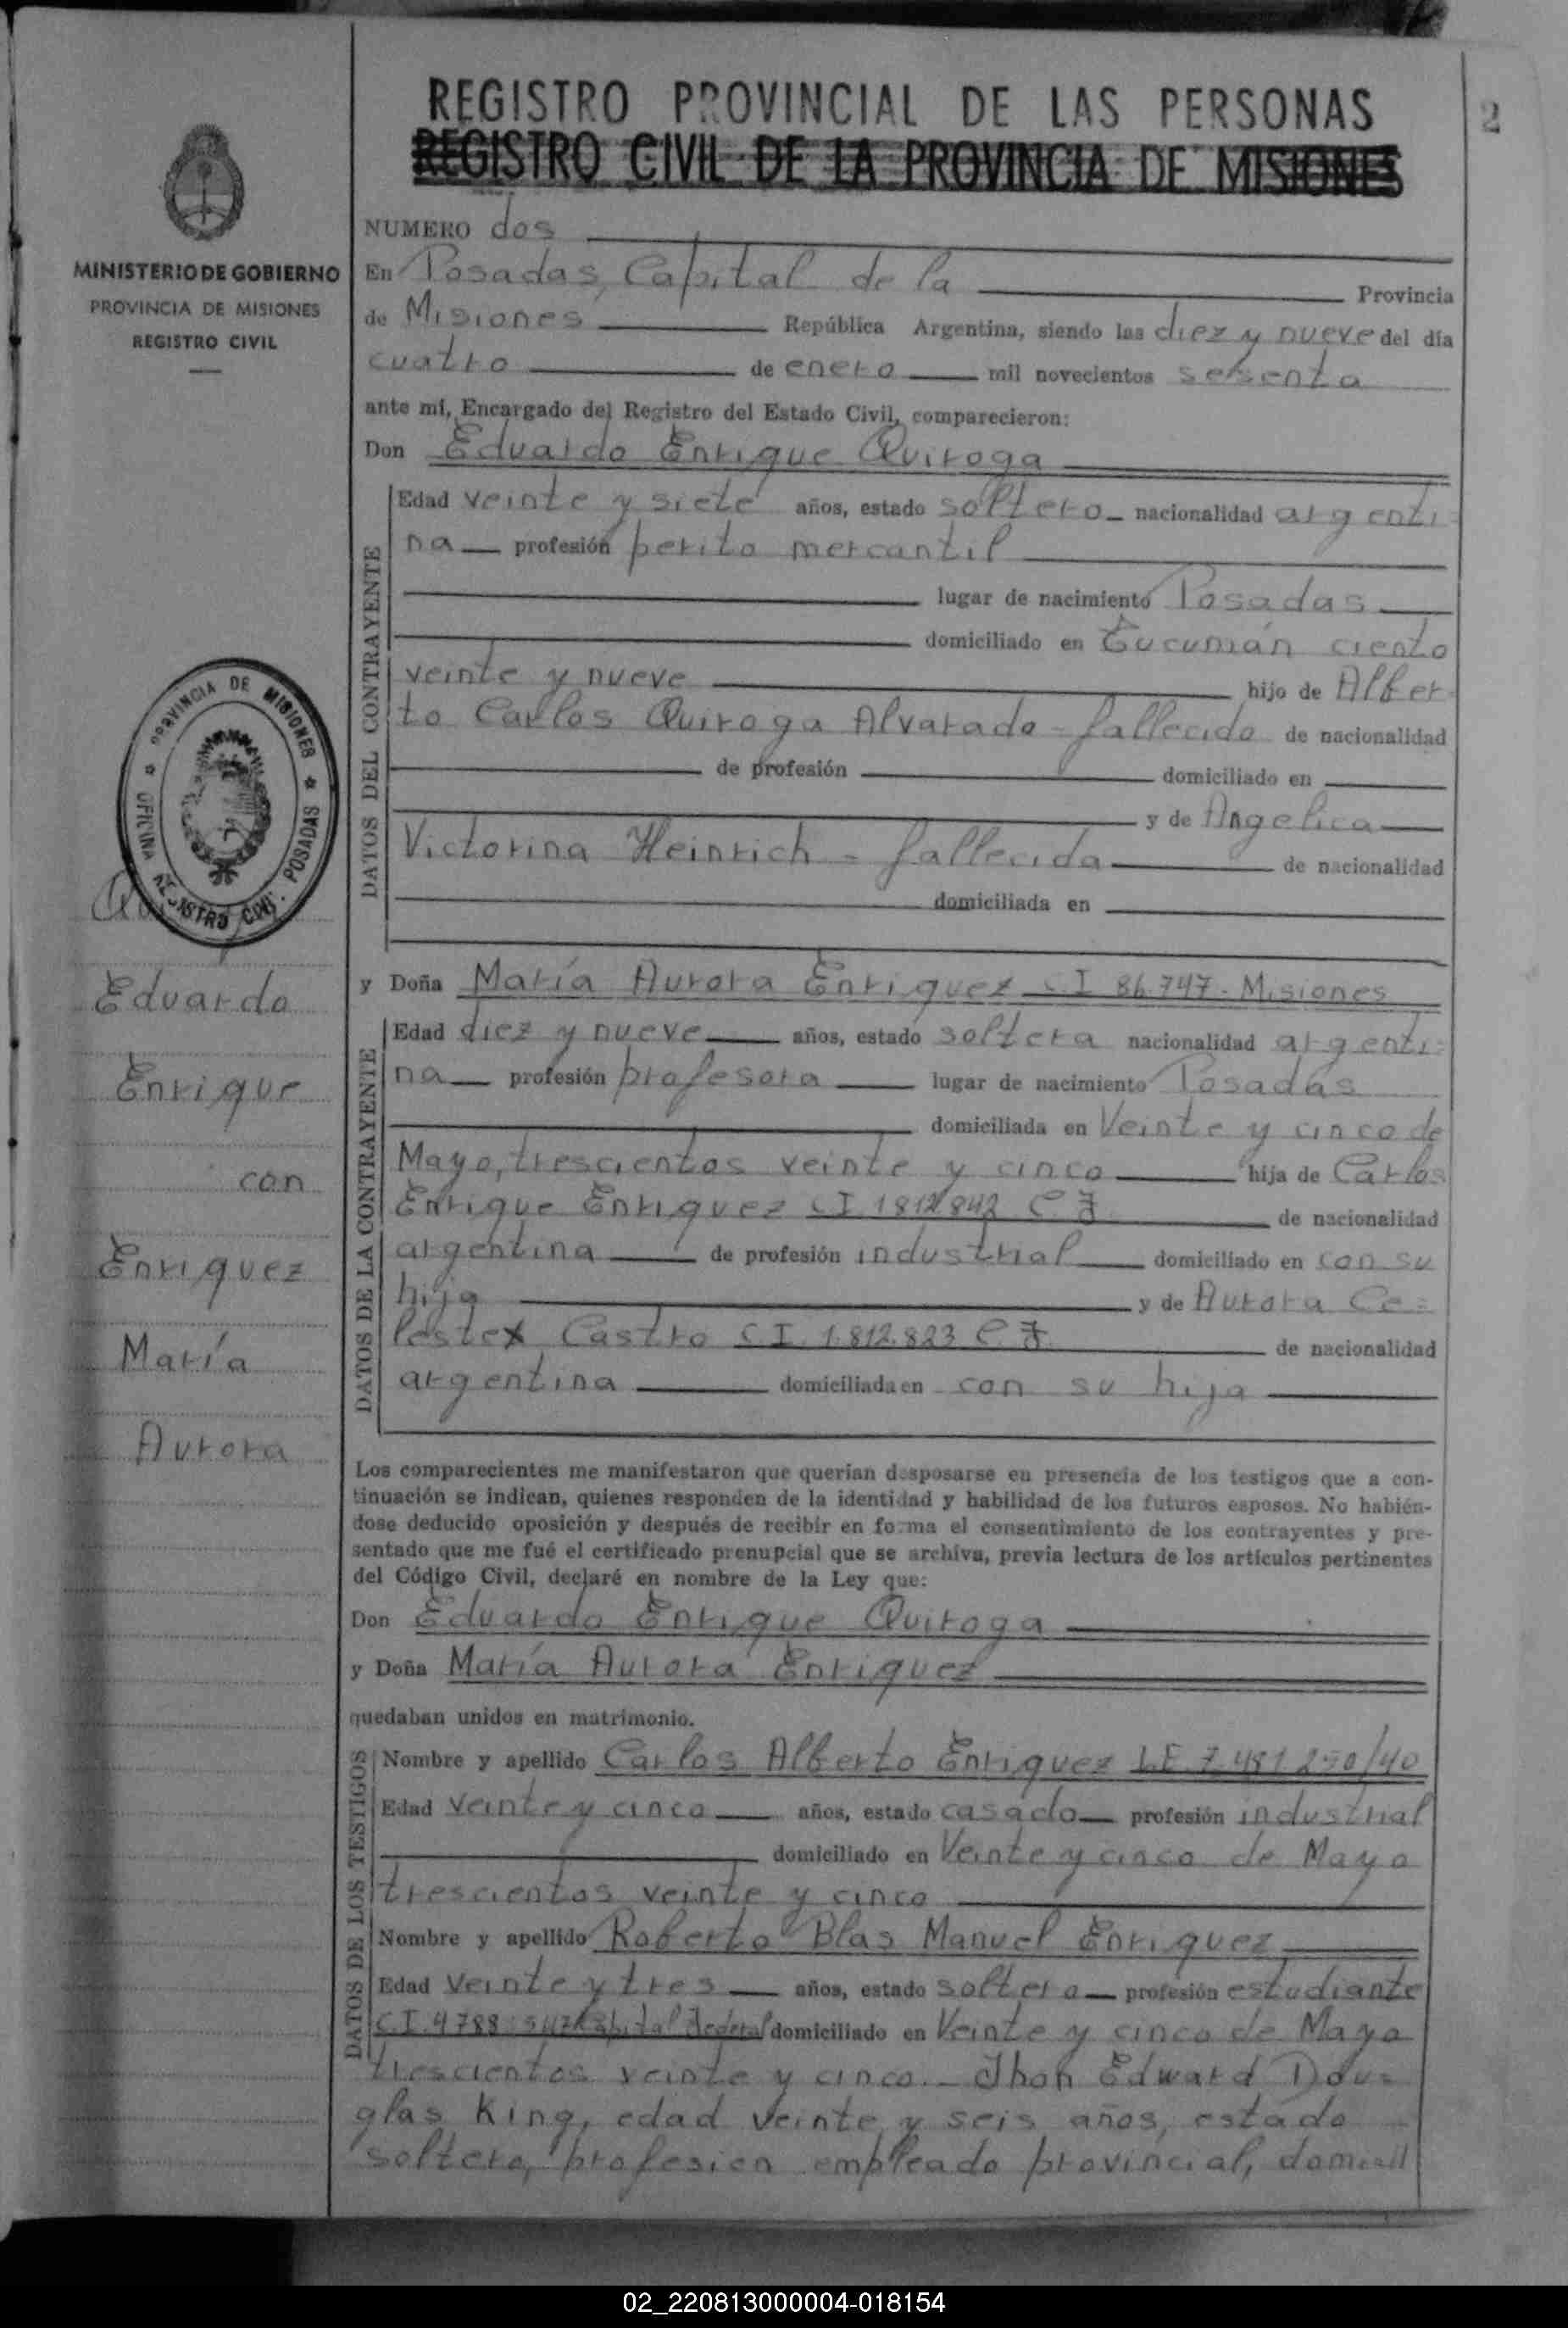 REGISTRO PROVINCIAL DE LAS PERSONAS
REGISTRO CIVIL DE LA PROVINCIA DE MISIONES
2
MINISTERIO DE GOBIERNO
PROVINCIA DE MISIONES
REGISTRO CIVIL
NUMERO dos
En Posadas, Capital de la Provincia
de Misiones República Argentina, siendo las diez y nueve del día
cuatro de enero mil novecientos sesenta
ante mí, Encargado del Registro del Estado Civil, comparecieron:
Don Eduardo Enrique Quiroga
DATOS DEL CONTRAYENTE
Edad veinte y siete años, estado soltero nacionalidad argenti=
na profesión perito mercantil
lugar de nacimiento Posadas
domiciliado en Tucumán ciento
veinte y nueve hijo de Alber=
to Carlos Quiroga Alvarado = fallecido de nacionalidad
de profesión domiciliado en
y de Angelica
Victorina Heinrich = fallecida de nacionalidad
domiciliada en
PROVINCIA DE MISIONES
OFICINA REGISTRO CIVIL POSADAS
Eduardo
Enrique
con
Enriquez
María
Aurora
y Doña María Aurora Enriquez C I 86.747 - Misiones
DATOS DE LA CONTRAYENTE
Edad diez y nueve años, estado soltera nacionalidad argenti=
na profesión profesora lugar de nacimiento Posadas
domiciliada en Veinte y cinco de
Mayo, trescientos veinte y cinco hija de Carlos
Enrique Enriquez C I 1.812.842 C F de nacionalidad
argentina de profesión industrial domiciliado en con su
hija y de Aurora Ce=
leste Castro C I 1.812.823 C F de nacionalidad
argentina domiciliada en con su hija
Los comparecientes me manifestaron que querían desposarse en presencia de los testigos que a con-
tinuación se indican, quienes responden de la identidad y habilidad de los futuros esposos. No habién-
dose deducido oposición y después de recibir en forma el consentimiento de los contrayentes y pre-
sentado que me fué el certificado prenupcial que se archiva, previa lectura de los artículos pertinentes
del Código Civil, declaré en nombre de la Ley que:
Don Eduardo Enrique Quiroga
y Doña María Aurora Enriquez
quedaban unidos en matrimonio.
DATOS DE LOS TESTIGOS
Nombre y apellido Carlos Alberto Enriquez L E 7.481.250/40
Edad veinte y cinco años, estado casado profesión industrial
domiciliado en Veinte y cinco de Mayo
trescientos veinte y cinco
Nombre y apellido Roberto Blas Manuel Enriquez
Edad veinte y tres años, estado soltero profesión estudiante
C.I. Capital Federal domiciliado en Veinte y cinco de Mayo
trescientos veinte y cinco.- Jhon Edward Dou=
glas King, edad veinte y seis años, estado
soltero, profesion empleado provincial, domicili
02_220813000004-018154